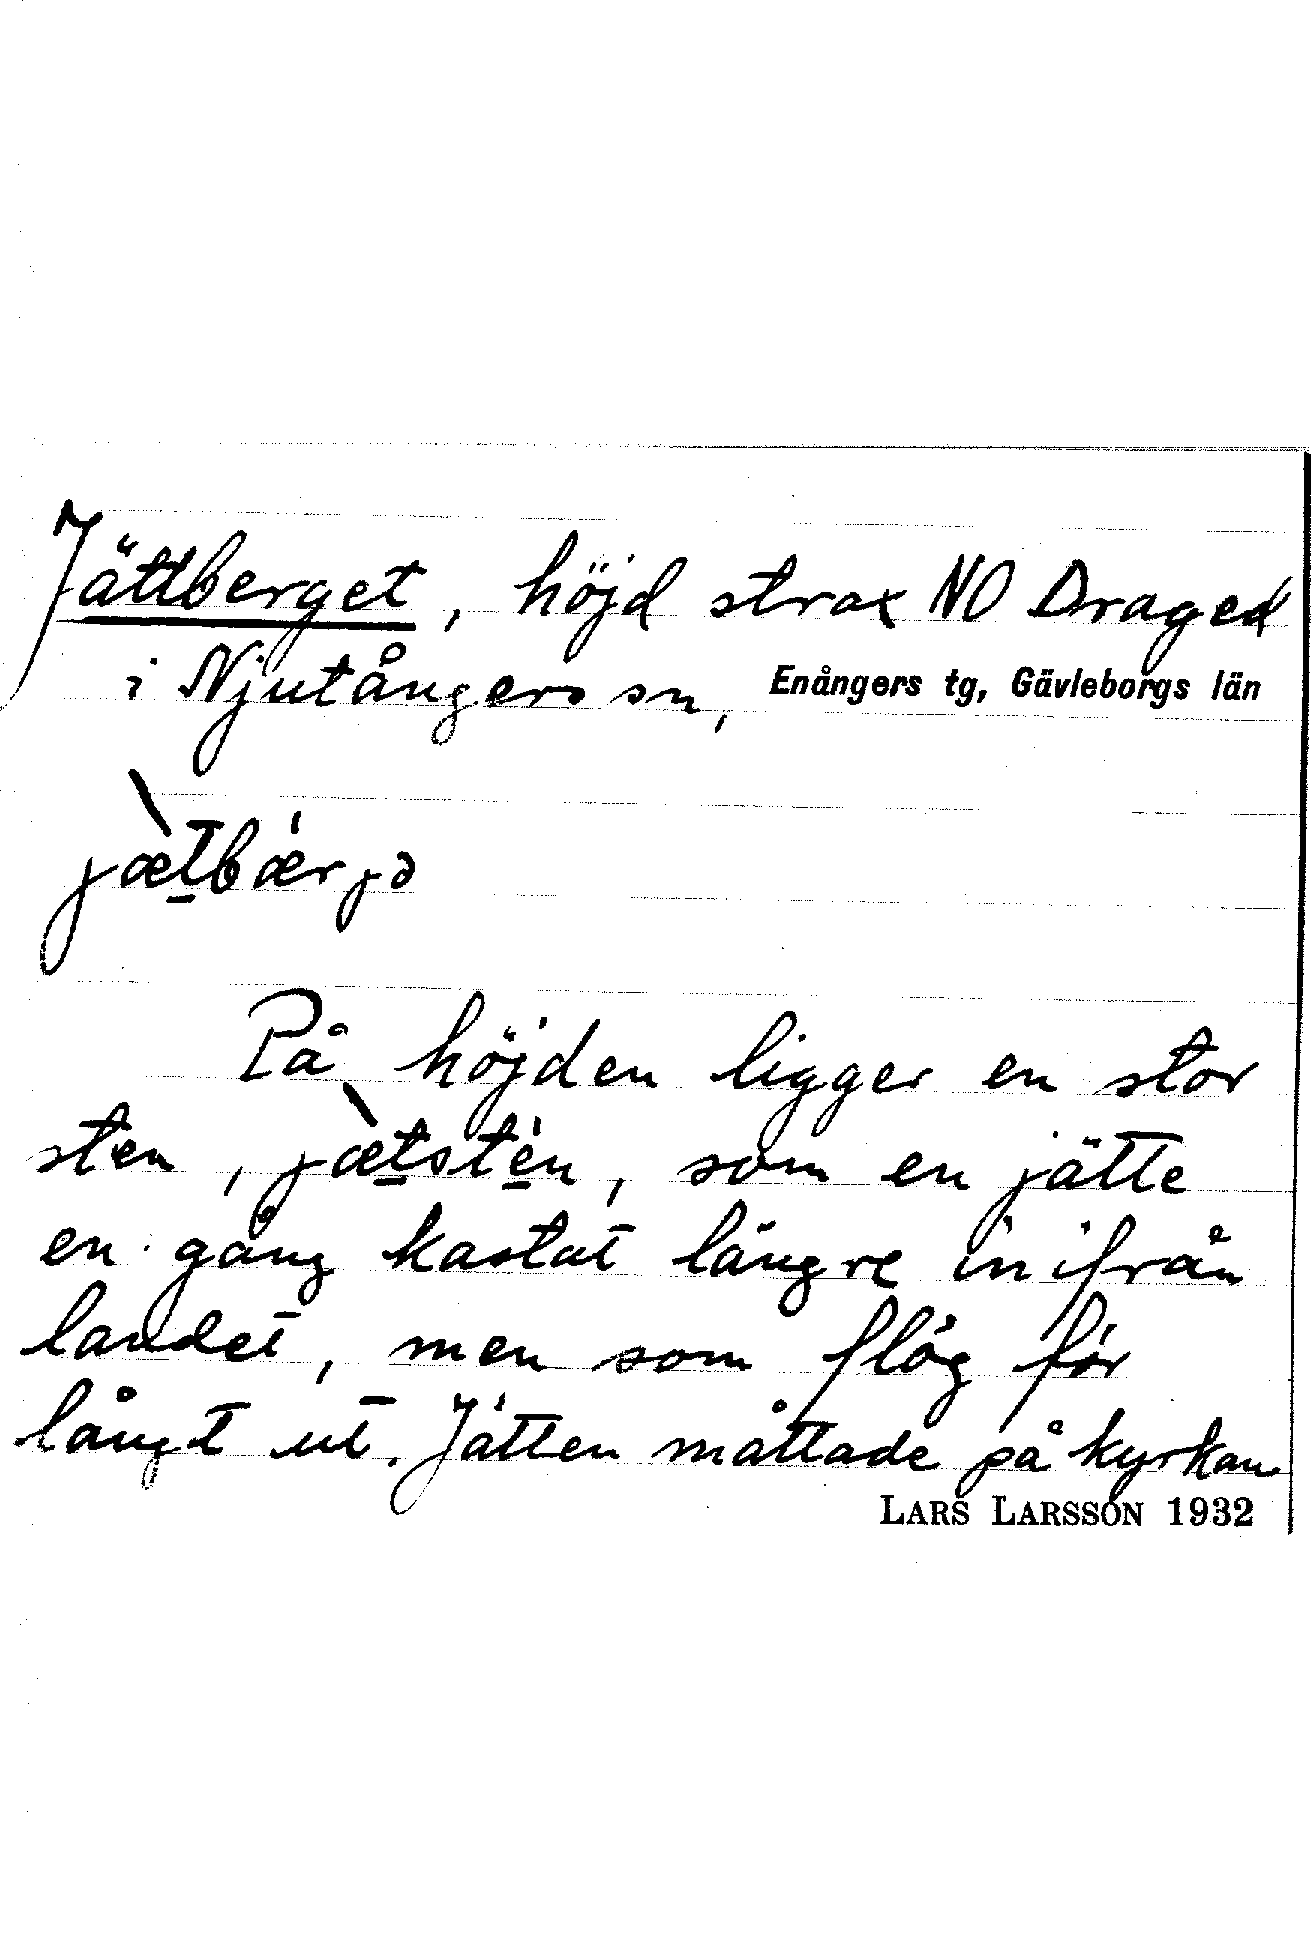 Jättberget, höjd strax NO Draged
i Njutångers sn, Enångers tg, Gävleborgs län
jæ̀t̲bæ̍rjə
På höjden ligger en stor
sten, jæ̀t̲ste̲̍n, som en jätte
en gång kastat längre inifrån
landet, men som flög för
långt ut. Jätten måttade på kyrkan
LARS LARSSON 1932